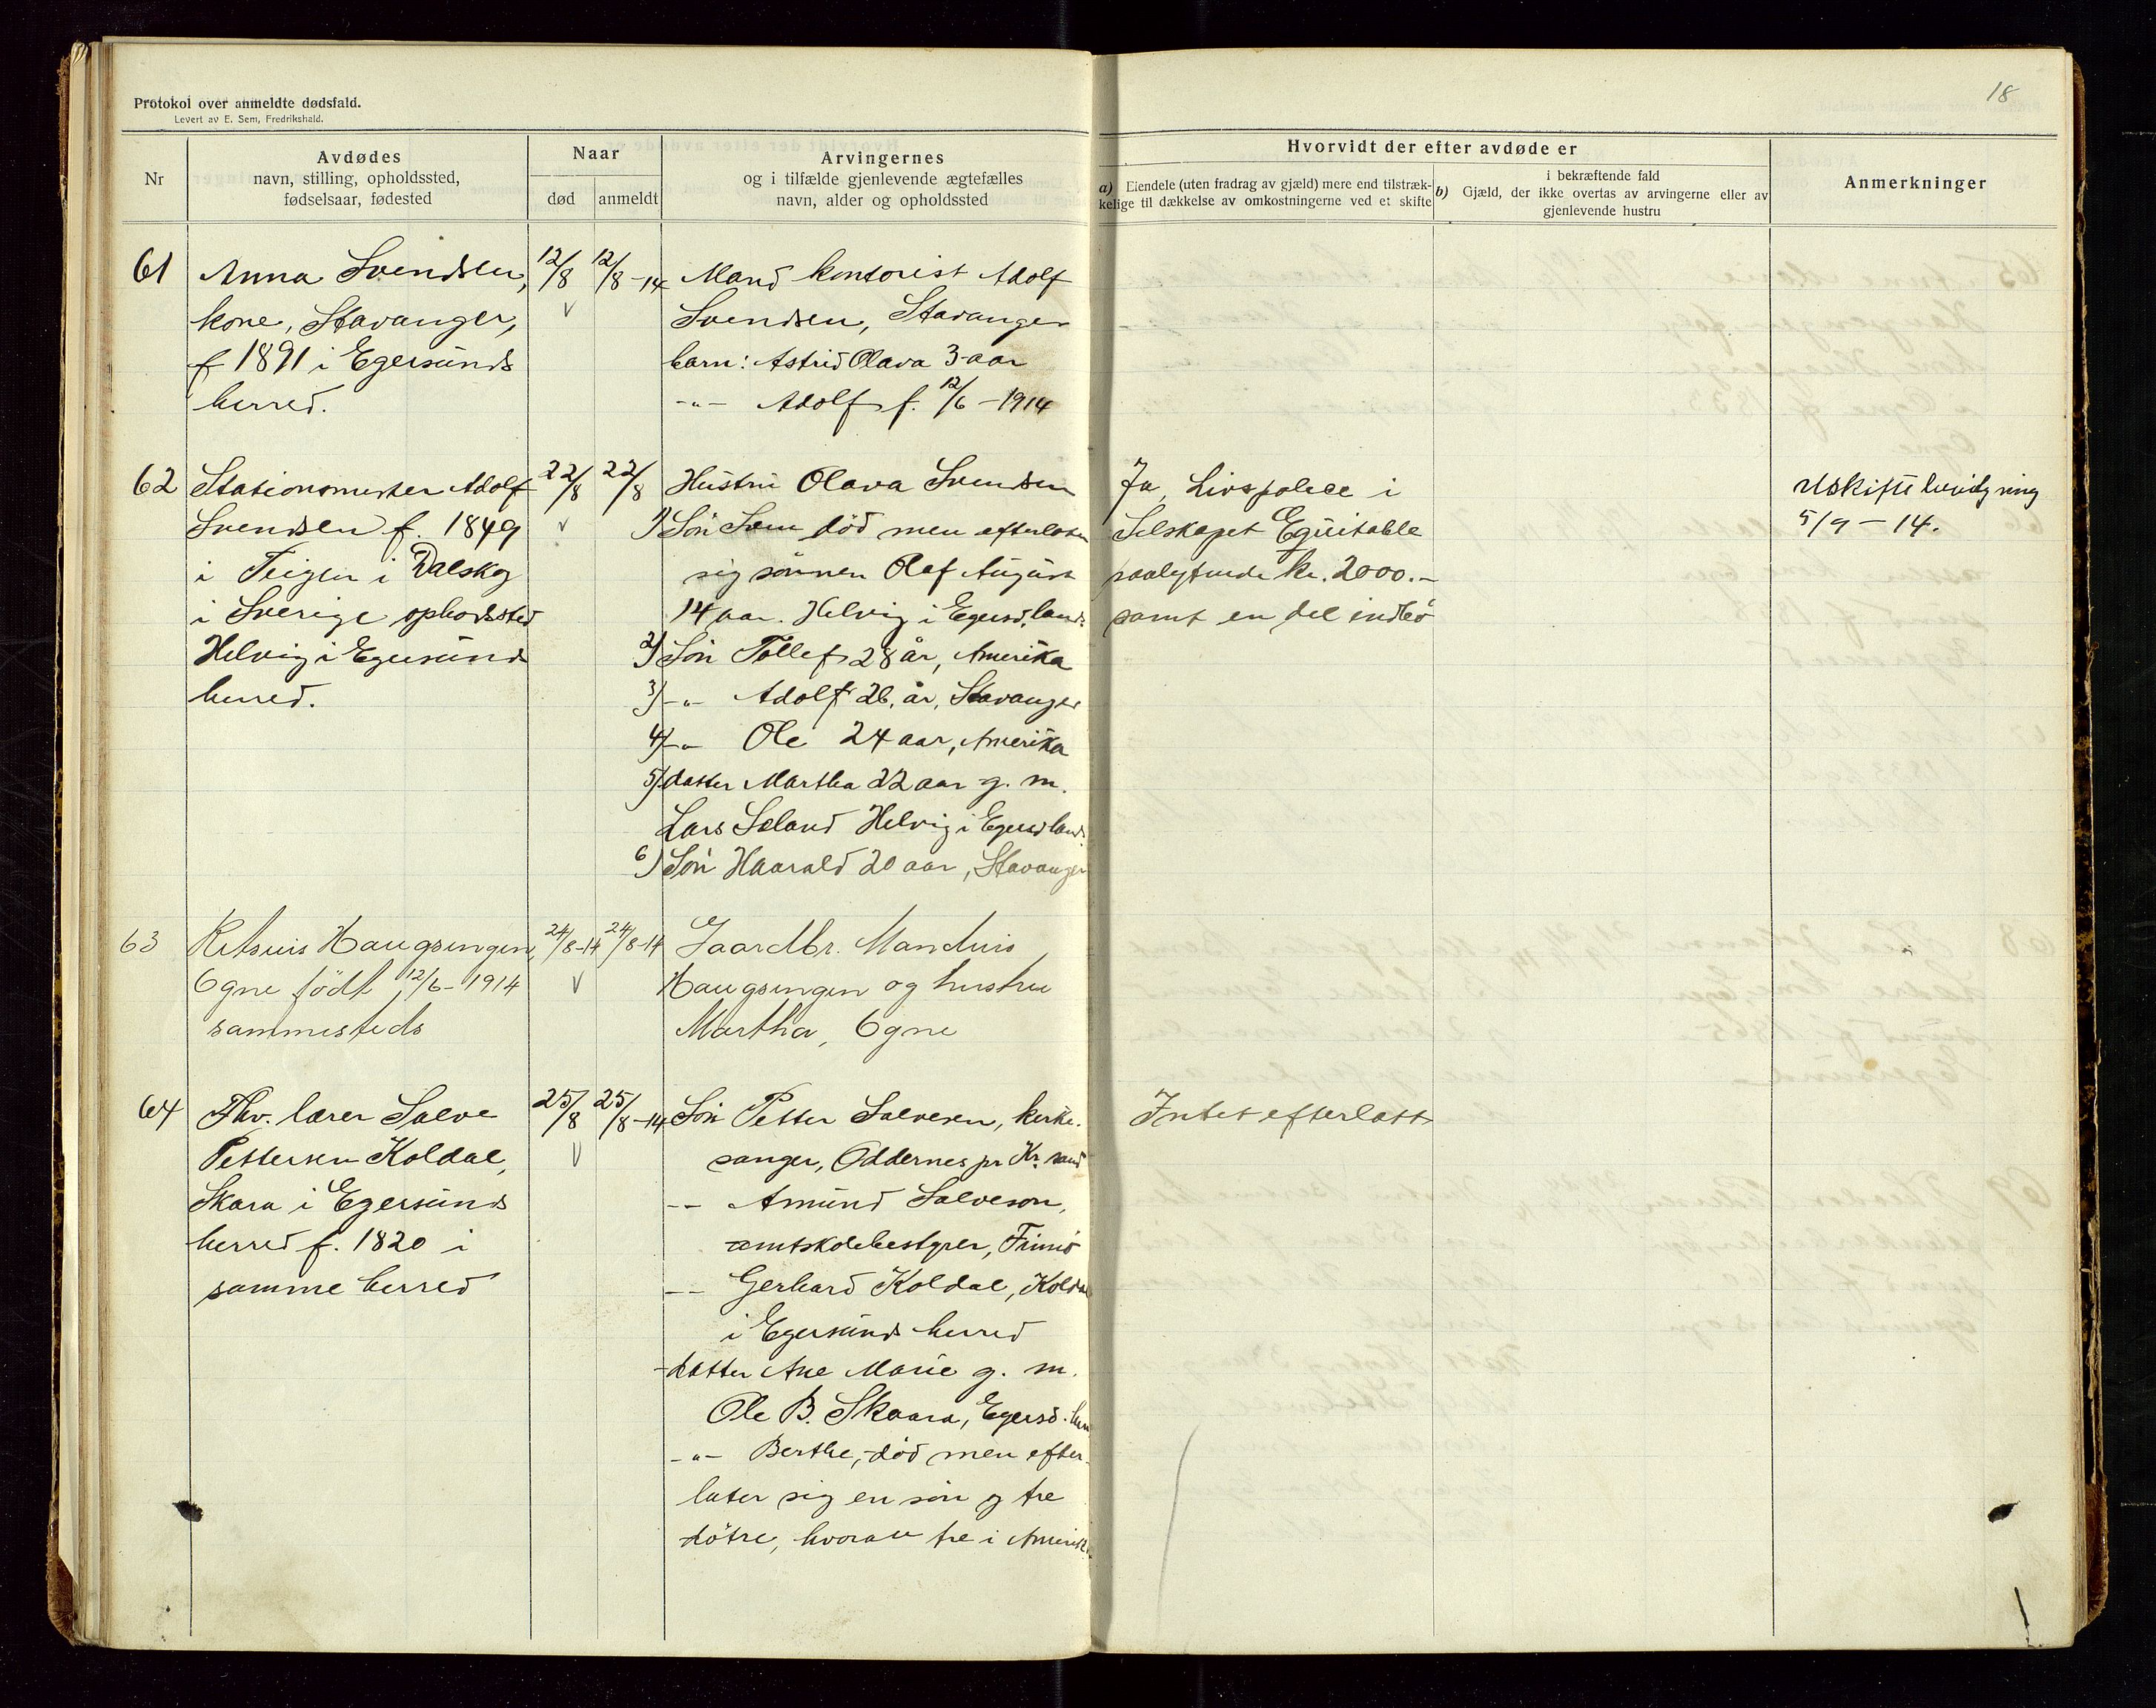 Protokol over anmeldte dødsfald.
Levert av E. Sem, Fredrikshald.
18
Nr
Avdødes
navn, stilling, opholdssted,
fødselsaar, fødested
Naar
død
anmeldt
Arvingernes
og i tilfælde gjenlevende ægtefælles
navn, alder og opholdssted
Hvorvidt der efter avdøde er
a) Eiendele (uten fradrag av gjæld) mere end tilstræk-
kelige til dækkelse av omkostningerne ved et skifte
b)
i bekræftende fald
Gjæld, der ikke overtas av arvingerne eller av
gjenlevende hustru
Anmerkninger
61
Anna Svendsen,
kone, Stavanger,
f 1891 i Egersunds
herred.
12/8
v
12/8-14
Mand kontorist Adolf
Svendsen, Stavanger
barn: Astrid Olava 3 aar
-"- Adolf f. 12/6-1914
62
Stationsmester Adolf
Svendsen f. 1849
i Teigen i Dalskog
i Sverige opholdssted
Helvig i Egersund
herred.
22/8
v
22/8
Hustru Olava Svendsen
1) Søn Sven død men efterlater
sig sønnen Olaf August
14 aar. Helvig i Egersd. lands.
2) Søn Tollef 28 år, Amerika
3) -"- Adolf 26 år, Stavanger
4) -"- Ole 24 aar, Amerika
5) datter Martha 22 aar g. m.
Lars Seland Helvig i Egersd lands.
6) Søn Haarald 20 aar, Stavanger
Ja, Livspolice i
Selskapet Equitable
paalydende kr. 2000.-
samt en del indbo
Uskiftebevilgning
5/9-14.
63
Haugsingen,
Ogne født 12/6-1914
sammesteds
24/8-14
v
24/8-14
Gaardbr. Mandius
Haugsingen og hustru
Martha, Ogne
64
Fhv. lærer Salve
Pettersen Koldal,
Skara i Egersunds
herred f. 1820 i
samme herred
25/8
v
25/8-14
Søn Petter Salvesen, kirke-
sanger, Oddernes pr Kr. sand
-- Amund Salveson,
amtskolebestyrer, Finnø
-- Gerhard Koldal, Koldal
i Egersunds herred
-datter Ane Marie g. m.
Ole B. Skaara, Egersd.
-"- Berthe, død men efter-
later sig en søn og tre
døtre, hvorav tre i Amerika
Intet efterlatt